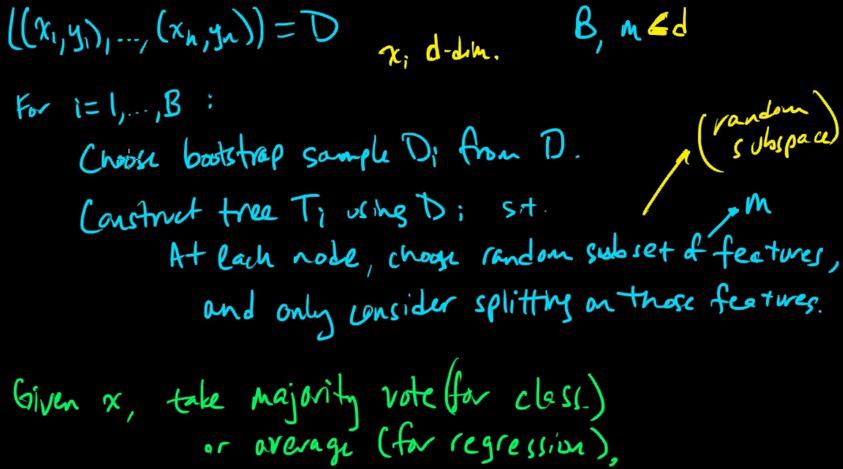 ((x₁,y₁),...,(xₙ,yₙ)) = D
B, m ≤ d
xᵢ d-dim.
For i=1,...,B :
Choose bootstrap sample Dᵢ from D.
(random subspace)
Construct tree Tᵢ using Dᵢ s.t.
m
At each node, choose random subset of features,
and only consider splitting on those features.
Given x, take majority vote (for class.)
or average (for regression).